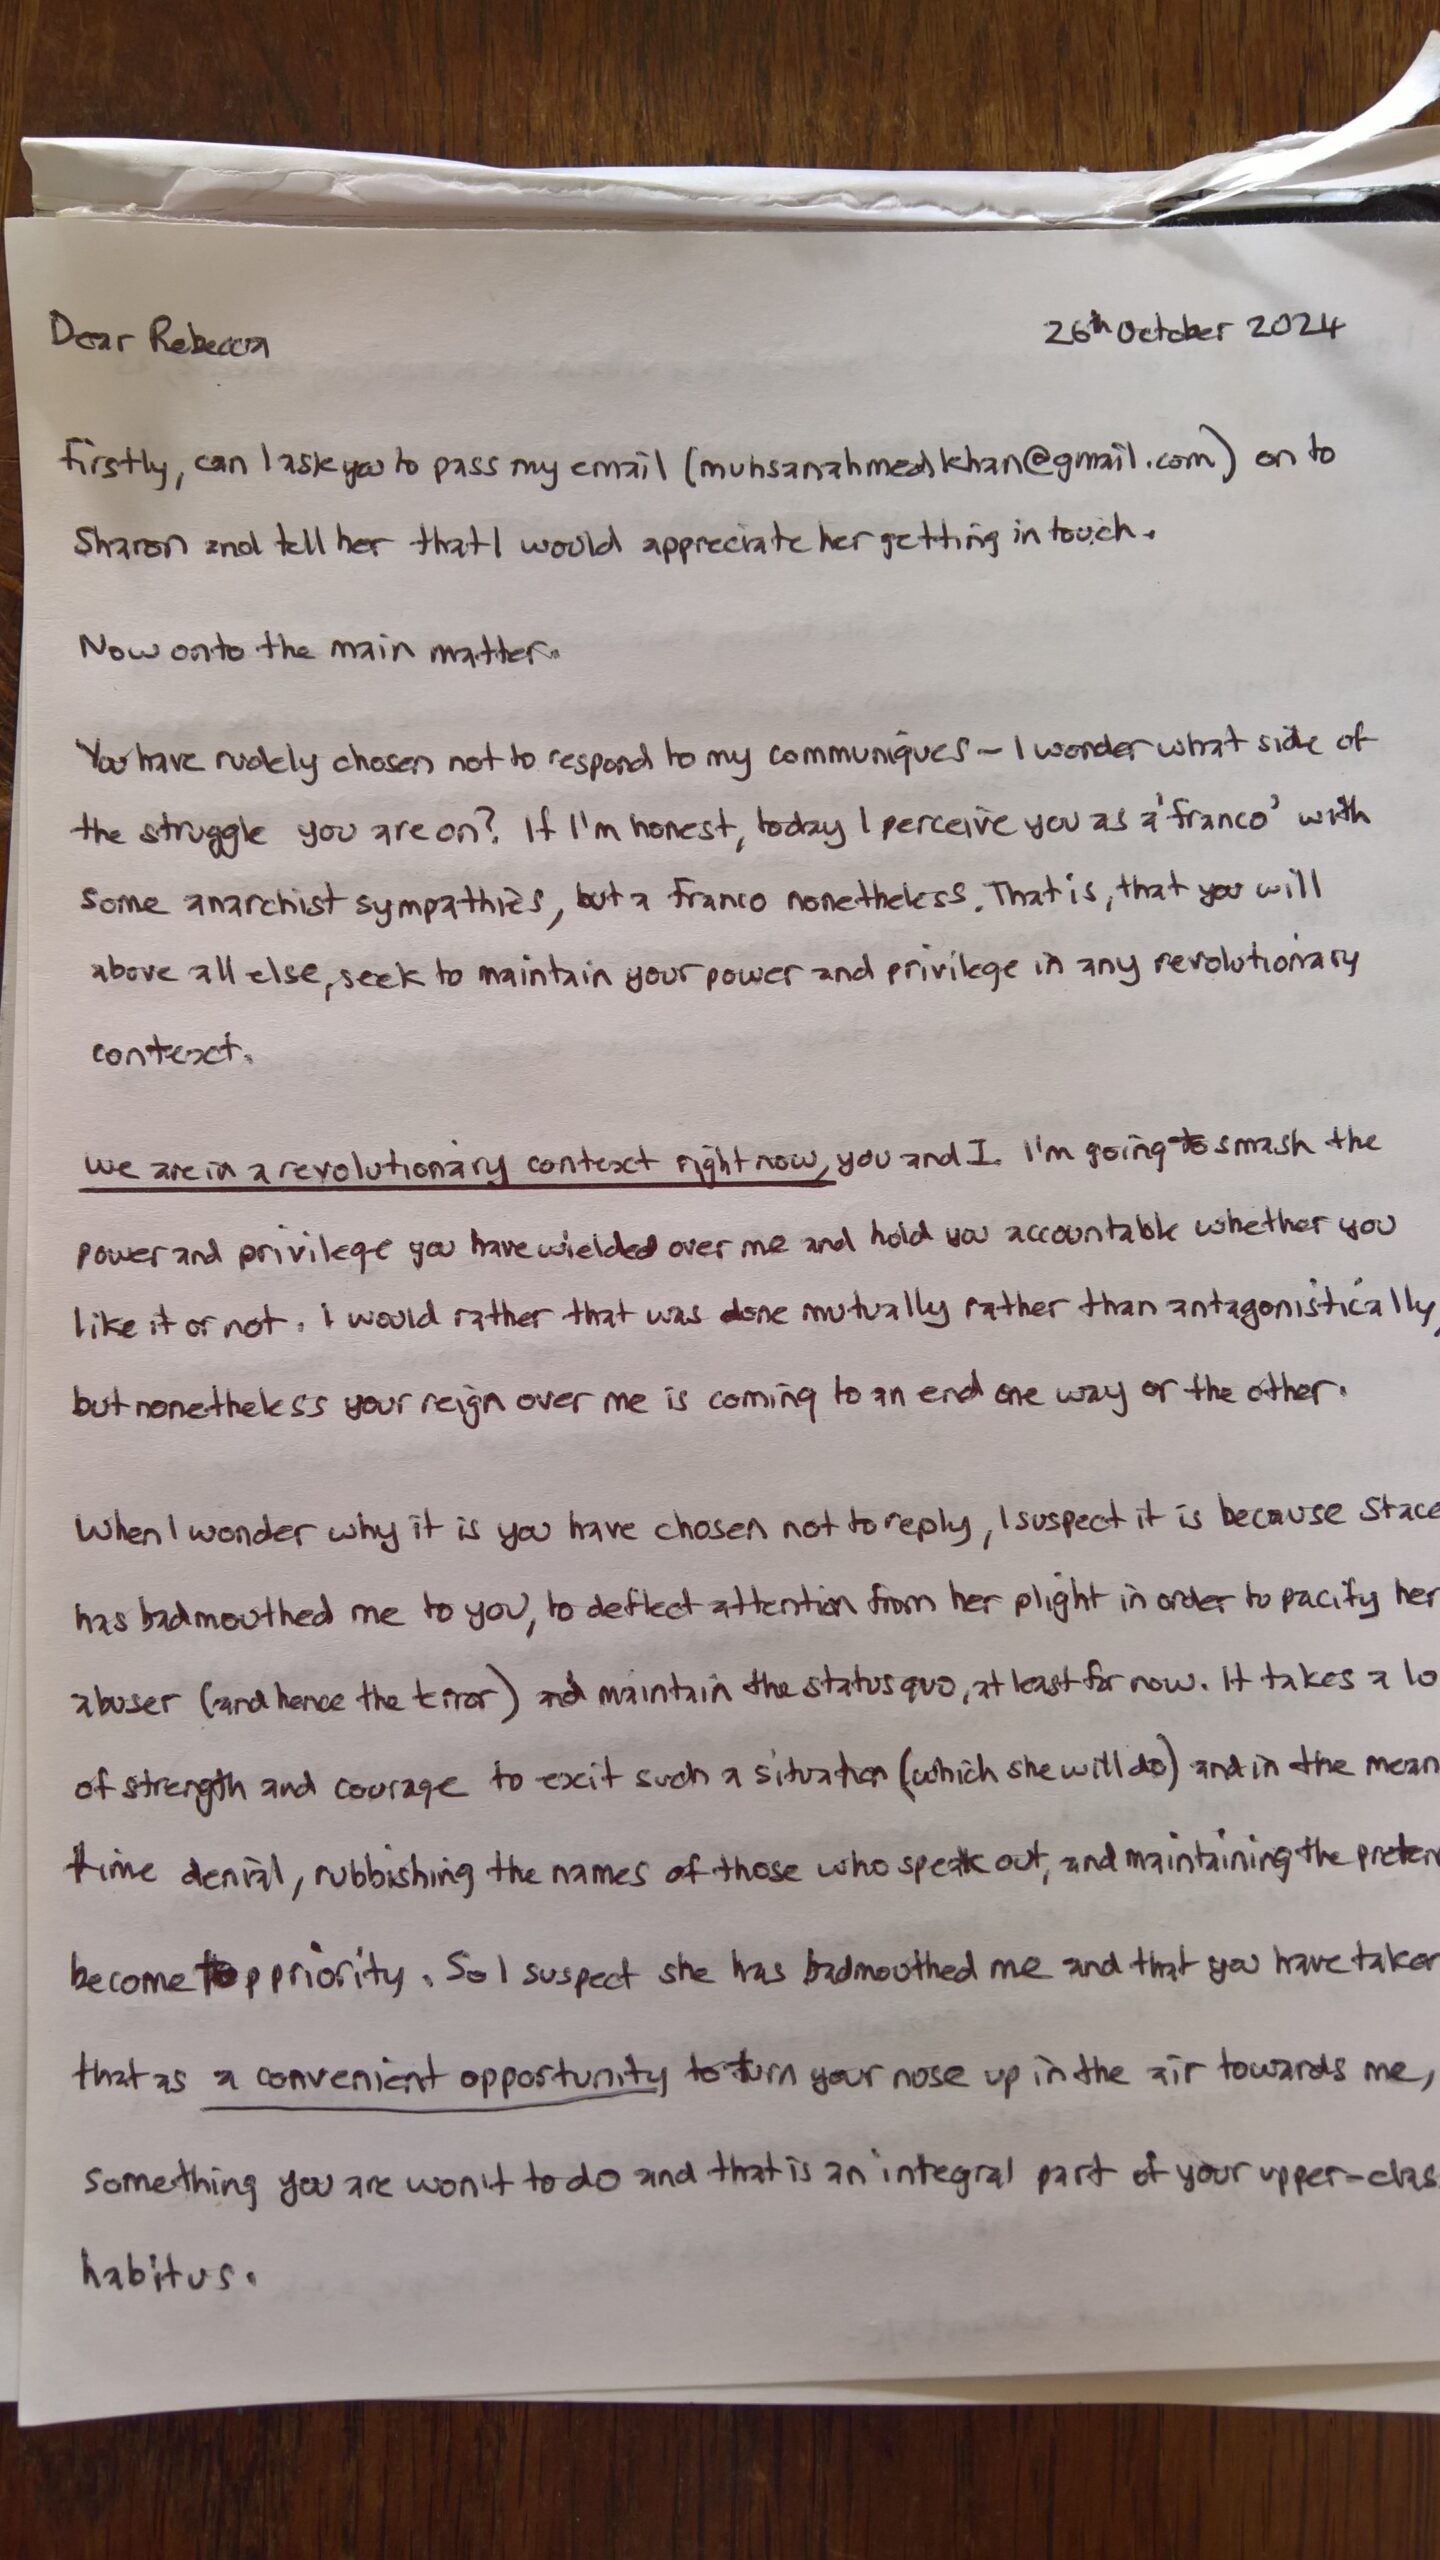 Dear Rebecca
26th October 2024
Firstly, can I ask you to pass my email (muhsanahmedkhan@gmail.com) on to
Sharon and tell her that I would appreciate her getting in touch.
Now onto the main matter.
You have rudely chosen not to respond to my communiques – I wonder what side of
the struggle you are on? If I'm honest, today I perceive you as a 'franco' with
some anarchist sympathies, but a franco nonetheless. That is, that you will
above all else, seek to maintain your power and privilege in any revolutionary
context.
We are in a revolutionary context right now, you and I. I'm going to smash the
power and privilege you have wielded over me and hold you accountable whether you
like it or not. I would rather that was done mutually rather than antagonistically,
but nonetheless your reign over me is coming to an end one way or the other.
When I wonder why it is you have chosen not to reply, I suspect it is because Stace
has badmouthed me to you, to deflect attention from her plight in order to pacify her
abuser (and hence the terror) and maintain the status quo, at least for now. It takes a lo
of strength and courage to exit such a situation (which she will do) and in the mean
time denial, rubbishing the names of those who speak out, and maintaining the preten
become top priority. So I suspect she has badmouthed me and that you have taken
that as a convenient opportunity to turn your nose up in the air towards me,
something you are won't to do and that is an integral part of your upper-clas
habitus.